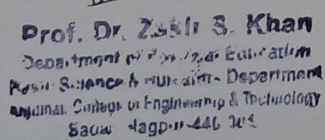 Prof. Dr. Zakir S. Khan
Department Education
Science & Department
Anjuman College of Engineering & Technology
Sadar Nagpur-446 001